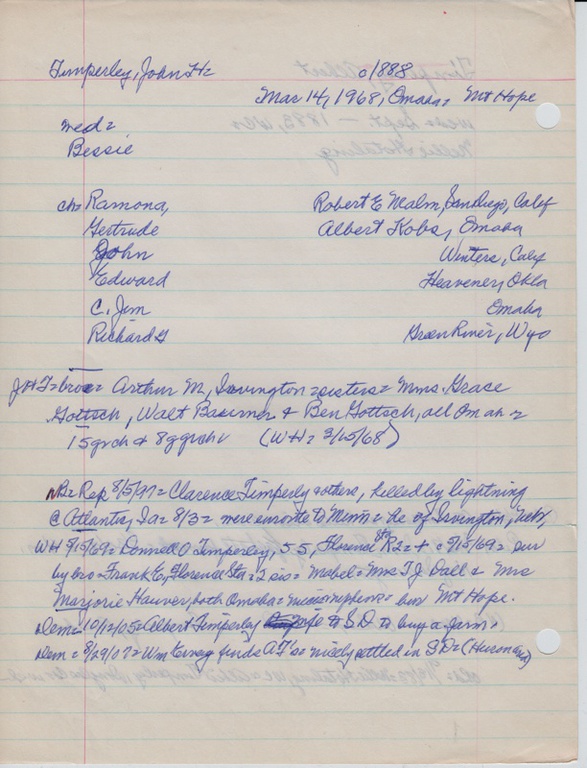 Timperley, John H= 01888
Mar 14, 1968, Omaha= Mt Hope
med=
Bessie
ch= Ramona, Robert E Malm, San Diego, Calif
Gertrude Albert Kobs, Omaha
John Winters, Calif
Edward Heavener, Okla
C. Jim Omaha
Richard G Green River, Wyo
JHT=bro= Arthur M, Irvington=sisters= Mmes Grace
Gottsch, Walt Baeumer & Ben Gottsch, all Omaha=
15 grch & 8 ggrch (WH= 3/15/68)
NB= Rep 8/5/97= Clarence Timperly & others, killed by lightning
@ Atlantis, Ia= 8/3= were enroute to Minn= he of Irvington, Nebr,
WH 9/15/69= Donnell O Timperley, 55, Florence Sta R2= + 9/15/69= sur
by bro=Frank E, Florence Sta=2 sis= Mabel= Mrs TJ Dall & Mrs
Marjorie Hauver, both Omaha= nieces nephews= bur Mt Hope.
Dem= 10/12/05= Albert Timperley to S.D to buy a farm.
Dem= 8/29/07= Wm finds AT's= nicely settled in SD= (Huron)